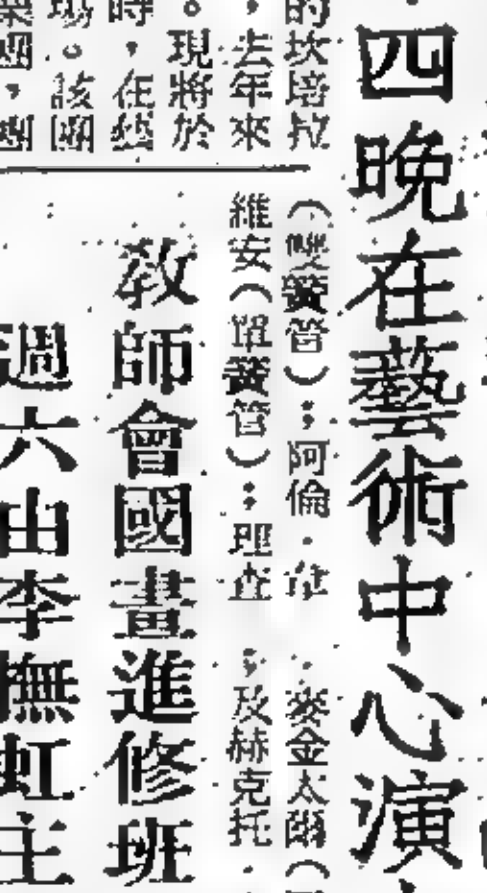 四晚在藝術中心演
的坎培拉
，去年來
。現將於
時，在藝
場。該團
樂團，團
（雙簧管）；阿倫·韋
維安（單簧管）；理查
；麥金太爾（
；及赫克托·
教師會國畫進修班
週六由李撫虹主